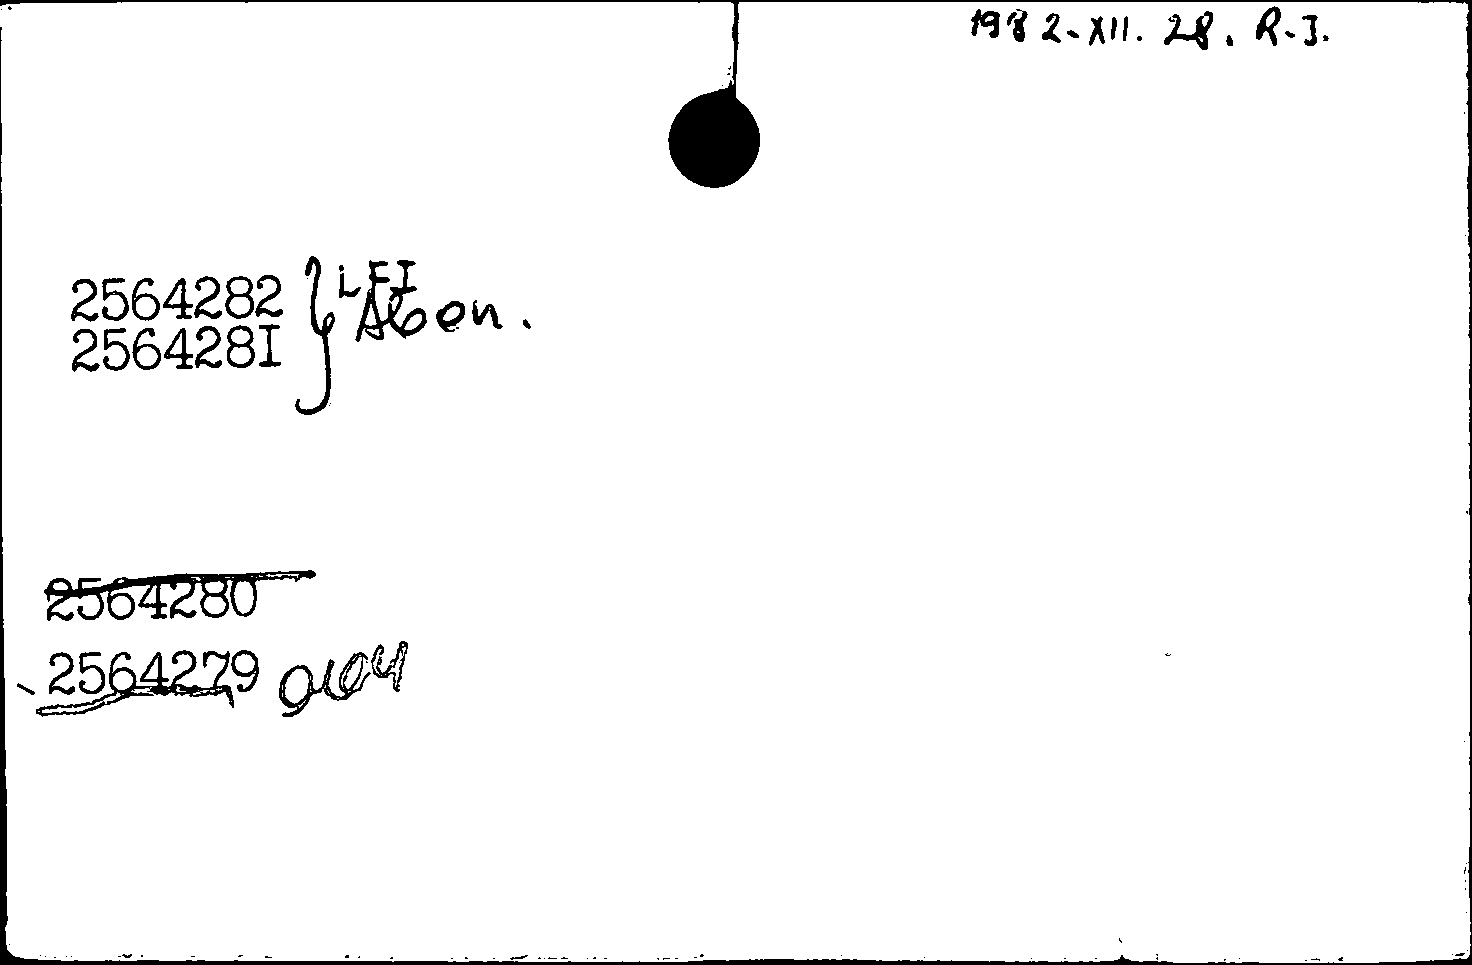 1982-XII. 28. R.J.
2564282 LFI
256428I
2564280
2564279